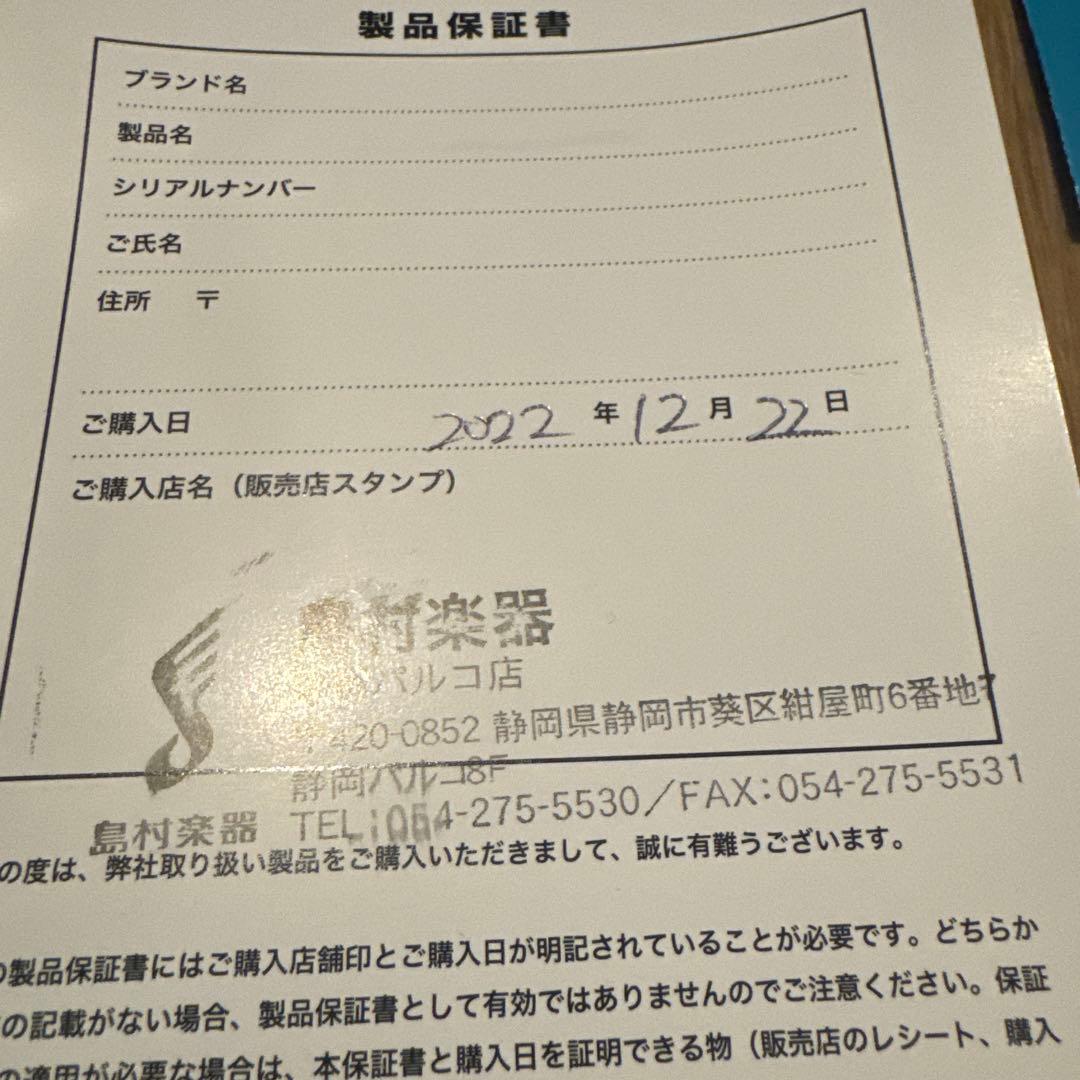 製品保証書
ブランド名
製品名
シリアルナンバー
ご氏名
住所 〒
ご購入日 2022 年 12 月 22 日
ご購入店名（販売店スタンプ）
村楽器
パルコ店
〒420-0852 静岡県静岡市葵区紺屋町6番地7
静岡パルコ8F
島村楽器 TEL:054-275-5530／FAX:054-275-5531
の度は、弊社取り扱い製品をご購入いただきまして、誠に有難うございます。
製品保証書にはご購入店舗印とご購入日が明記されていることが必要です。どちらか
の記載がない場合、製品保証書として有効ではありませんのでご注意ください。保証
の適用が必要な場合は、本保証書と購入日を証明できる物（販売店のレシート、購入